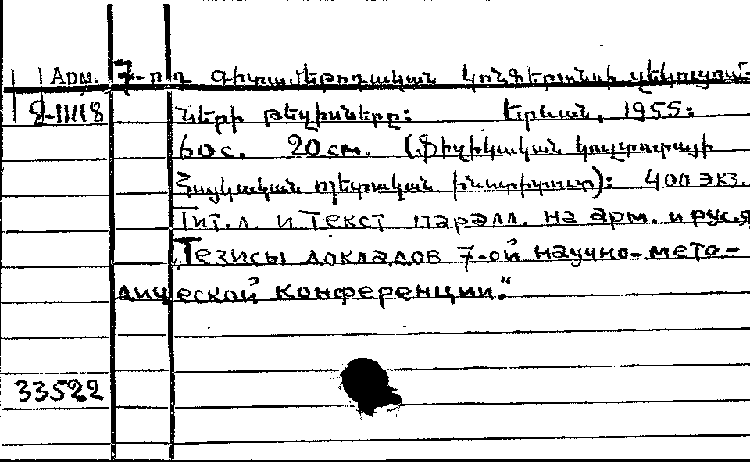 Арм. 7-րդ գիտամեթոդական կոնֆերանսի զեկուցում-
2-11118 ների թեզիսները: Երևան, 1955:
60с. 20см. (Ֆիզիկական կուլտուրայի
Հայկական պետական ինստիտուտ): 400 экз.
Тит.л. и текст паралл. на арм. и рус.я
„Тезисы докладов 7-ой научно-мето-
дической конференции."
33522